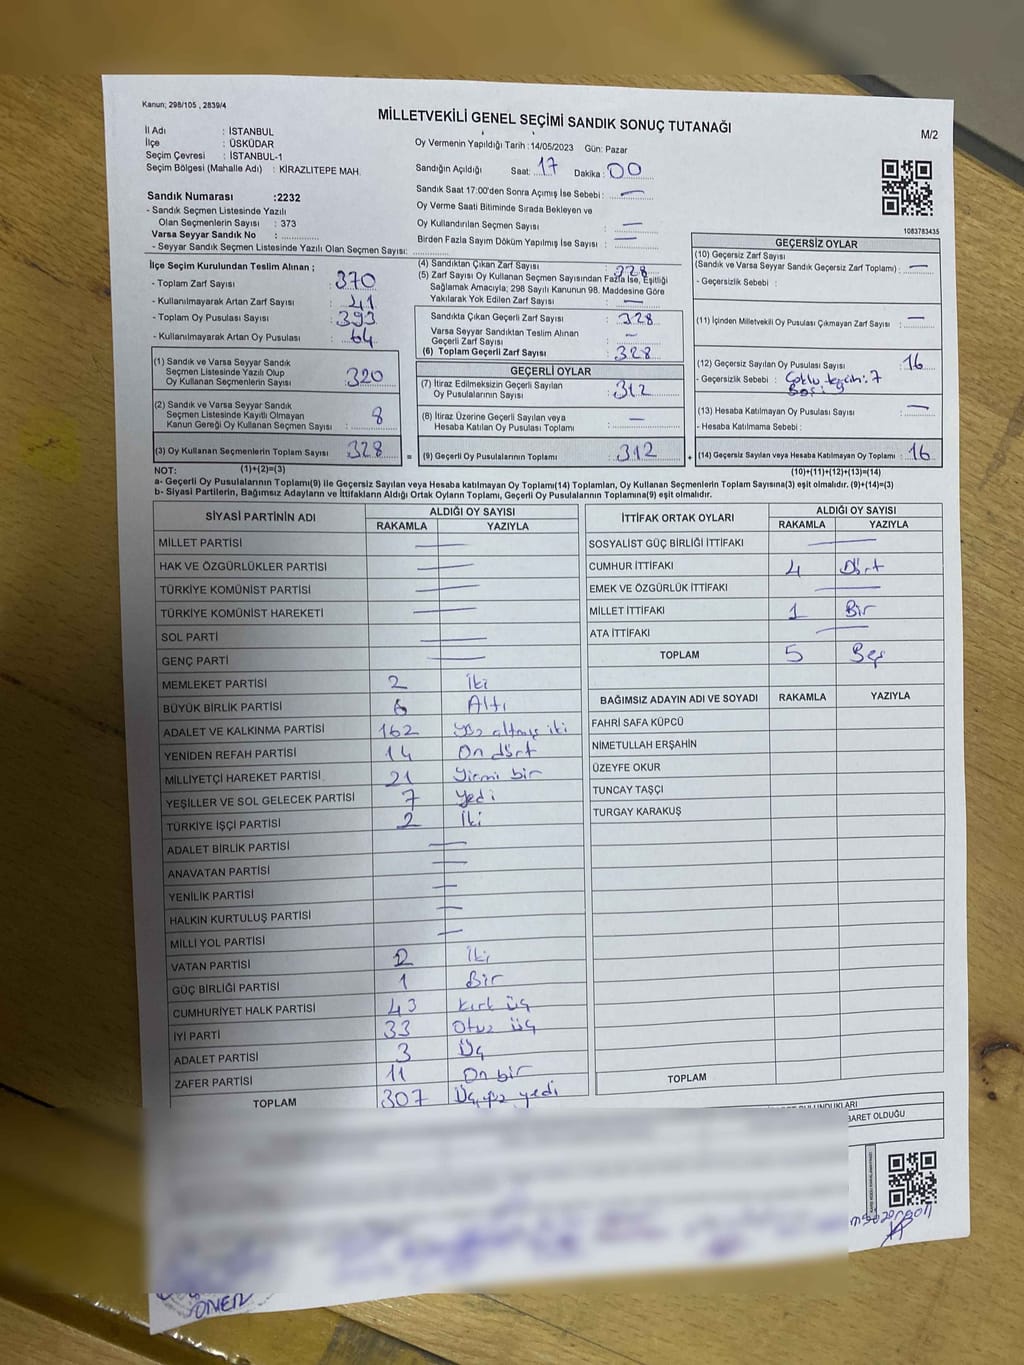 Kanun; 298/105 , 2839/4
MİLLETVEKİLİ GENEL SEÇİMİ SANDIK SONUÇ TUTANAĞI
M/2
İl Adı : İSTANBUL
İlçe : ÜSKÜDAR
Seçim Çevresi : İSTANBUL-1
Seçim Bölgesi (Mahalle Adı) : KİRAZLITEPE MAH.
Sandık Numarası :2232
- Sandık Seçmen Listesinde Yazılı
Olan Seçmenlerin Sayısı : 373
Varsa Seyyar Sandık No :
- Seyyar Sandık Seçmen Listesinde Yazılı Olan Seçmen Sayısı:
Oy Vermenin Yapıldığı Tarih : 14/05/2023 Gün: Pazar
Sandığın Açıldığı Saat: 17 Dakika : 00
Sandık Saat 17:00'den Sonra Açımış İse Sebebi : —
Oy Verme Saati Bitiminde Sırada Bekleyen ve
Oy Kullandırılan Seçmen Sayısı : —
Birden Fazla Sayım Döküm Yapılmış İse Sayısı : —
1083783435
İlçe Seçim Kurulundan Teslim Alınan ;
- Toplam Zarf Sayısı : 370
- Kullanılmayarak Artan Zarf Sayısı : 41
- Toplam Oy Pusulası Sayısı : 393
- Kullanılmayarak Artan Oy Pusulası : 64
(1) Sandık ve Varsa Seyyar Sandık
Seçmen Listesinde Yazılı Olup
Oy Kullanan Seçmenlerin Sayısı : 320
(2) Sandık ve Varsa Seyyar Sandık
Seçmen Listesinde Kayıtlı Olmayan
Kanun Gereği Oy Kullanan Seçmen Sayısı : 8
(3) Oy Kullanan Seçmenlerin Toplam Sayısı : 328 =
(4) Sandıktan Çıkan Zarf Sayısı : 328
(5) Zarf Sayısı Oy Kullanan Seçmen Sayısından Fazla İse, Eşitliği
Sağlamak Amacıyla; 298 Sayılı Kanunun 98. Maddesine Göre
Yakılarak Yok Edilen Zarf Sayısı : —
Sandıkta Çıkan Geçerli Zarf Sayısı : 328
Varsa Seyyar Sandıktan Teslim Alınan
Geçerli Zarf Sayısı : —
(6) Toplam Geçerli Zarf Sayısı : 328
GEÇERLİ OYLAR
(7) İtiraz Edilmeksizin Geçerli Sayılan
Oy Pusulalarının Sayısı : 312
(8) İtiraz Üzerine Geçerli Sayılan veya
Hesaba Katılan Oy Pusulası Toplamı : —
(9) Geçerli Oy Pusulalarının Toplamı : 312 +
GEÇERSİZ OYLAR
(10) Geçersiz Zarf Sayısı
(Sandık ve Varsa Seyyar Sandık Geçersiz Zarf Toplamı) : —
- Geçersizlik Sebebi :
(11) İçinden Milletvekili Oy Pusulası Çıkmayan Zarf Sayısı : —
(12) Geçersiz Sayılan Oy Pusulası Sayısı : 16
- Geçersizlik Sebebi :
(13) Hesaba Katılmayan Oy Pusulası Sayısı : —
- Hesaba Katılmama Sebebi :
(14) Geçersiz Sayılan veya Hesaba Katılmayan Oy Toplamı : 16
NOT: (1)+(2)=(3) (10)+(11)+(12)+(13)=(14)
a- Geçerli Oy Pusulalarının Toplamı(9) ile Geçersiz Sayılan veya Hesaba Katılmayan Oy Toplamı(14) Toplamları, Oy Kullanan Seçmenlerin Toplam Sayısına(3) eşit olmalıdır. (9)+(14)=(3)
b- Siyasi Partilerin, Bağımsız Adayların ve İttifakların Aldığı Ortak Oyların Toplamı, Geçerli Oy Pusulalarının Toplamına(9) eşit olmalıdır.
SİYASİ PARTİNİN ADI ALDIĞI OY SAYISI
RAKAMLA YAZIYLA
MİLLET PARTİSİ —
HAK VE ÖZGÜRLÜKLER PARTİSİ —
TÜRKİYE KOMÜNİST PARTİSİ —
TÜRKİYE KOMÜNİST HAREKETİ —
SOL PARTİ —
GENÇ PARTİ —
MEMLEKET PARTİSİ 2 İki
BÜYÜK BİRLİK PARTİSİ 6 Altı
ADALET VE KALKINMA PARTİSİ 162 Yüz altmış iki
YENİDEN REFAH PARTİSİ 14 On dört
MİLLİYETÇİ HAREKET PARTİSİ 21 Yirmi bir
YEŞİLLER VE SOL GELECEK PARTİSİ 7 Yedi
TÜRKİYE İŞÇİ PARTİSİ 2 İki
ADALET BİRLİK PARTİSİ —
ANAVATAN PARTİSİ —
YENİLİK PARTİSİ —
HALKIN KURTULUŞ PARTİSİ —
MİLLİ YOL PARTİSİ —
VATAN PARTİSİ 2 İki
GÜÇ BİRLİĞİ PARTİSİ 1 Bir
CUMHURİYET HALK PARTİSİ 43 Kırk üç
İYİ PARTİ 33 Otuz üç
ADALET PARTİSİ 3 Üç
ZAFER PARTİSİ 11 On bir
TOPLAM 307 Üç yüz yedi
İTTİFAK ORTAK OYLARI ALDIĞI OY SAYISI
RAKAMLA YAZIYLA
SOSYALİST GÜÇ BİRLİĞİ İTTİFAKI —
CUMHUR İTTİFAKI 4 Dört
EMEK VE ÖZGÜRLÜK İTTİFAKI —
MİLLET İTTİFAKI 1 Bir
ATA İTTİFAKI —
TOPLAM 5 Beş
BAĞIMSIZ ADAYIN ADI VE SOYADI RAKAMLA YAZIYLA
FAHRİ SAFA KÜPCÜ
NİMETULLAH ERŞAHİN
ÜZEYFE OKUR
TUNCAY TAŞÇI
TURGAY KARAKUŞ
TOPLAM
BARET OLDUĞU
ÖNER